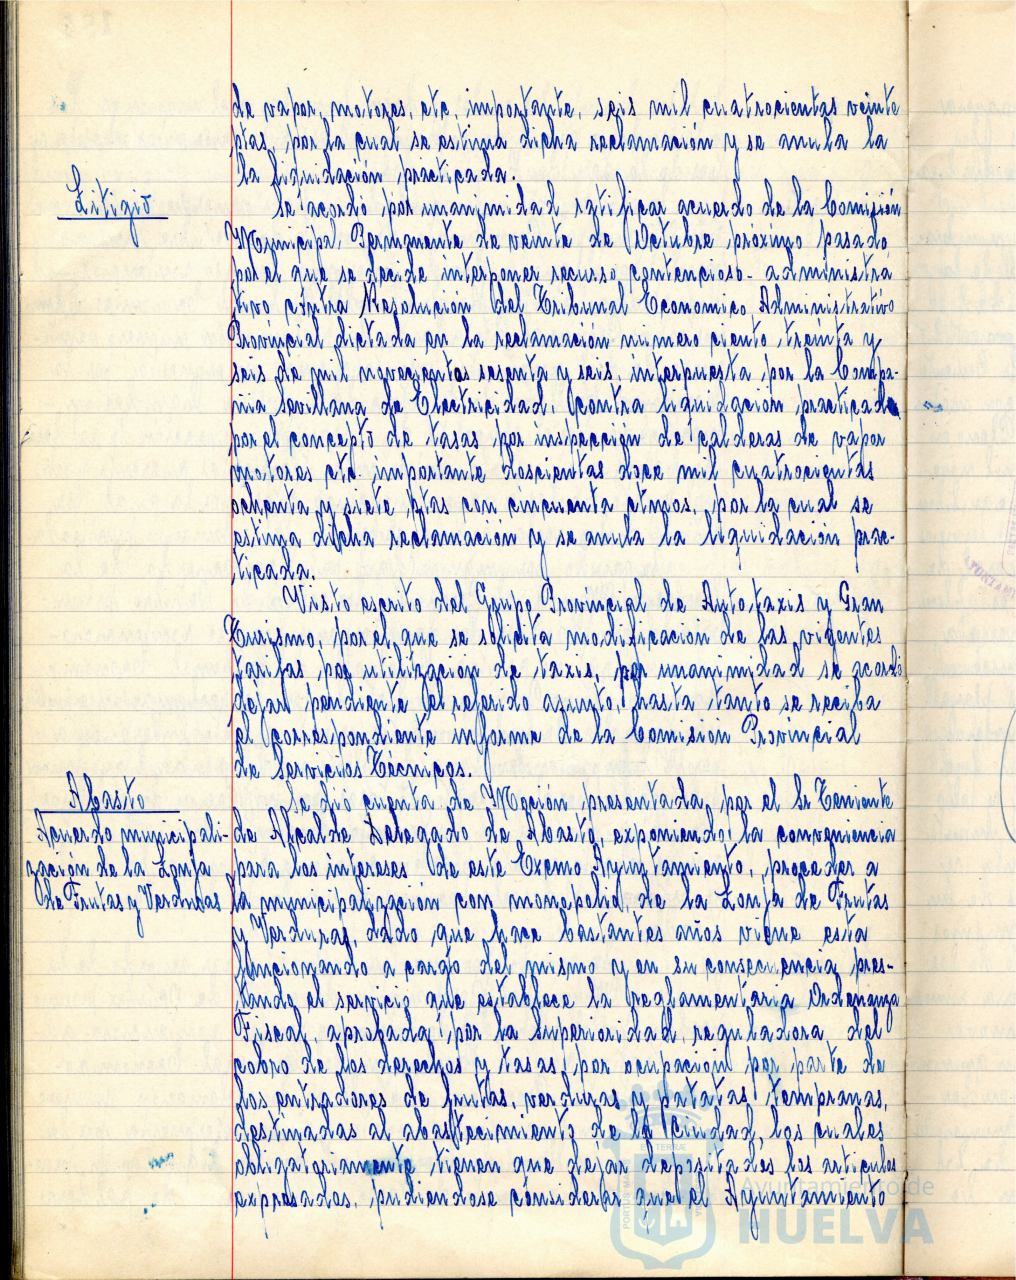 de vapor, motores, etc, importante, seis mil cuatrocientas veinte
ptas, por la cual se estima dicha reclamación y se anula la
la liquidación practicada.
Litigio
Se acordó por unanimidad ratificar acuerdo de la Comisión
Municipal Permanente de veinte de Octubre próximo pasado
por el que se decide interponer recurso contencioso-administra
tivo contra Resolución del Tribunal Económico Administrativo
Provincial dictada en la reclamación número ciento treinta y
seis de mil novecientos sesenta y seis, interpuesta por la Compa-
ñia Sevillana de Electricidad, contra liquidación practicada
por el concepto de tasas por inspección de calderas de vapor
motores etc. importante doscientas doce mil cuatrocientas
ochenta y siete ptas con cincuenta ctmos, por la cual se
estima dicha reclamación y se anula la liquidación prac-
ticada.
Visto escrito del Grupo Provincial de Auto taxis y Gran
Turismo, por el que se solicita modificación de las vigentes
tarifas por utilización de taxis, por unanimidad se acordó
dejar pendiente el referido asunto, hasta tanto se reciba
el correspondiente informe de la Comisión Provincial
de Servicios Técnicos.
Abasto
Acuerdo municipali-
zación de la Lonja
de Frutas y Verduras
Se dió cuenta de Moción presentada por el Sr Teniente
de Alcalde Delegado de Abasto, exponiendo la conveniencia
para los intereses de este Excmo Ayuntamiento, proceder a
la municipalización con monopolio, de la Lonja de Frutas
y Verduras, dado que hace bastantes años viene esta
funcionando a cargo del mismo y en su consecuencia pres-
tando el servicio que establece la reglamentaria Ordenanza
Fiscal, aprobada por la Superioridad, reguladora del
cobro de los derechos y tasas por ocupación por parte de
los entradores de frutas, verduras y patatas tempranas,
destinadas al abastecimiento de la ciudad, los cuales
obligatoriamente tienen que dejar depositados los artículos
expresados, pudiendose considerar que el Ayuntamiento
Ayuntamiento de
HUELVA